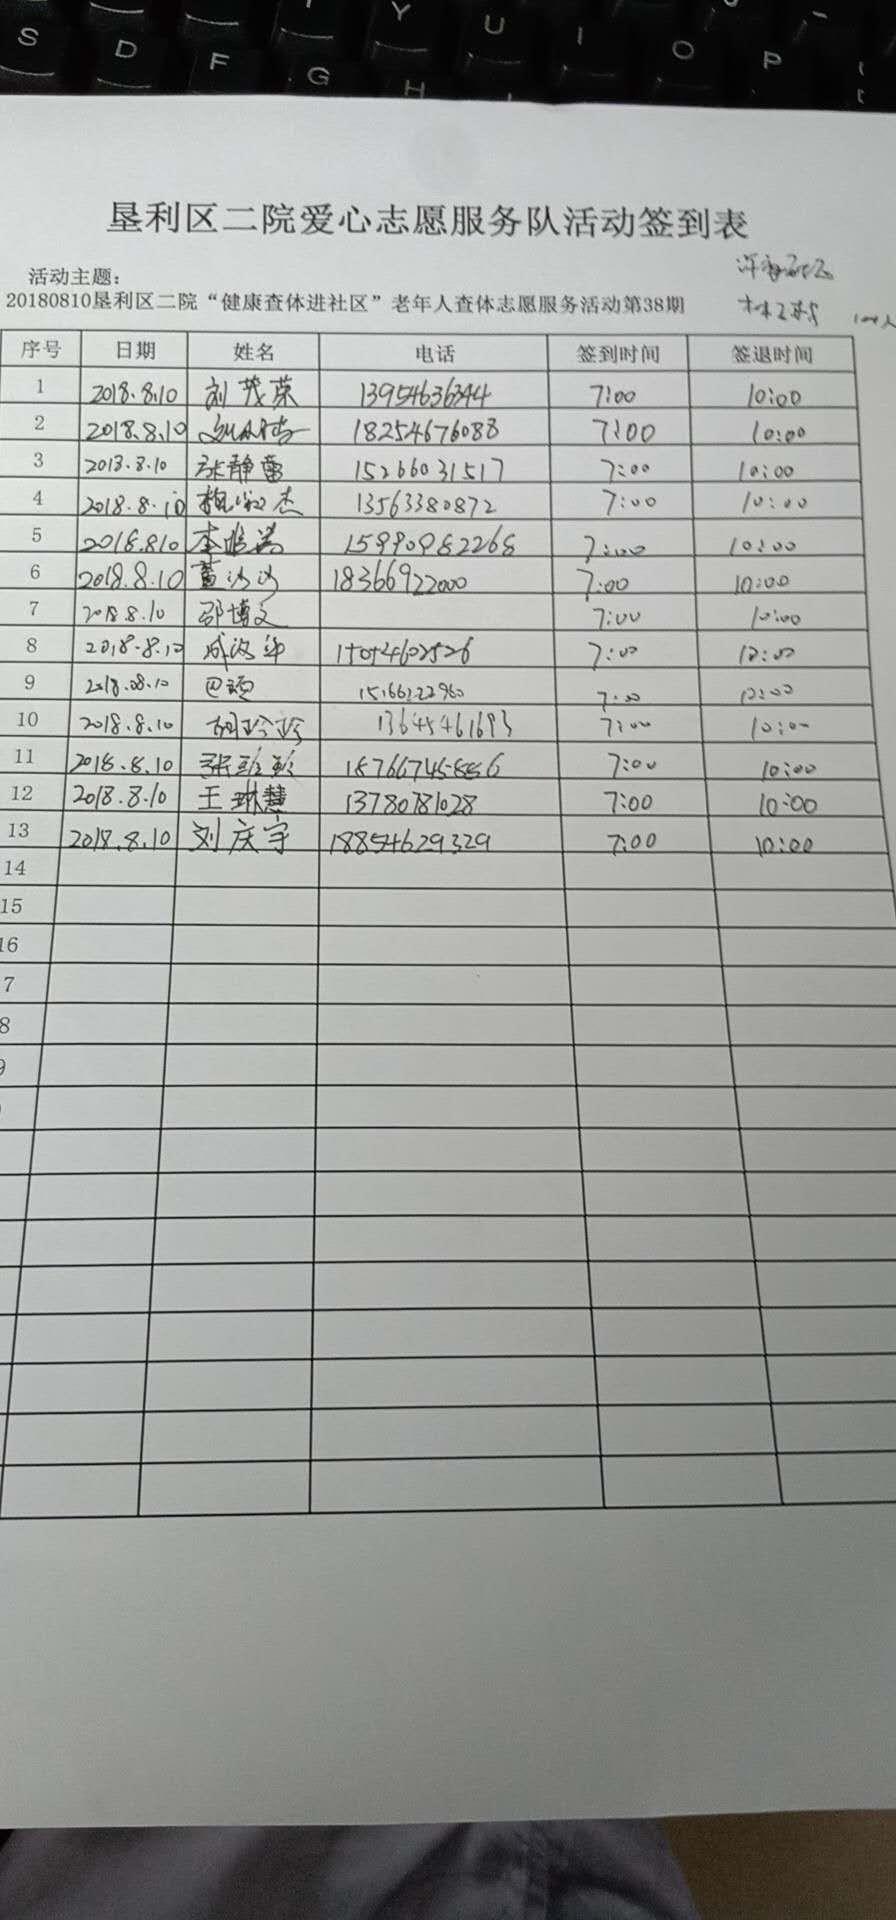 S D F G H Y U I O P
垦利区二院爱心志愿服务队活动签到表
活动主题：
20180810垦利区二院“健康查体进社区”老年人查体志愿服务活动第38期
序号 日期 姓名 电话 签到时间 签退时间
1 2018.8.10 刘茂荣 13954636344 7:00 10:00
2 2018.8.10 18254676088 7:00 10:00
3 2018.8.10 张静蕾 15266031517 7:00 10:00
4 2018.8.10 13563380872 7:00 10:00
5 2018.8.10 15990982268 7:00 10:00
6 2018.8.10 董沙沙 18366922000 7:00 10:00
7 2018.8.10 邵博文 7:00 10:00
8 2018.8.10 7:00 10:00
9 2018.08.10 7:00 10:00
10 2018.8.10 胡玲玲 13645461693 7:00 10:00
11 2018.8.10 张班班 7:00 10:00
12 2018.8.10 王琳慧 13780781028 7:00 10:00
13 2018.8.10 刘庆宇 18854629329 7:00 10:00
14
15
16
7
8
9